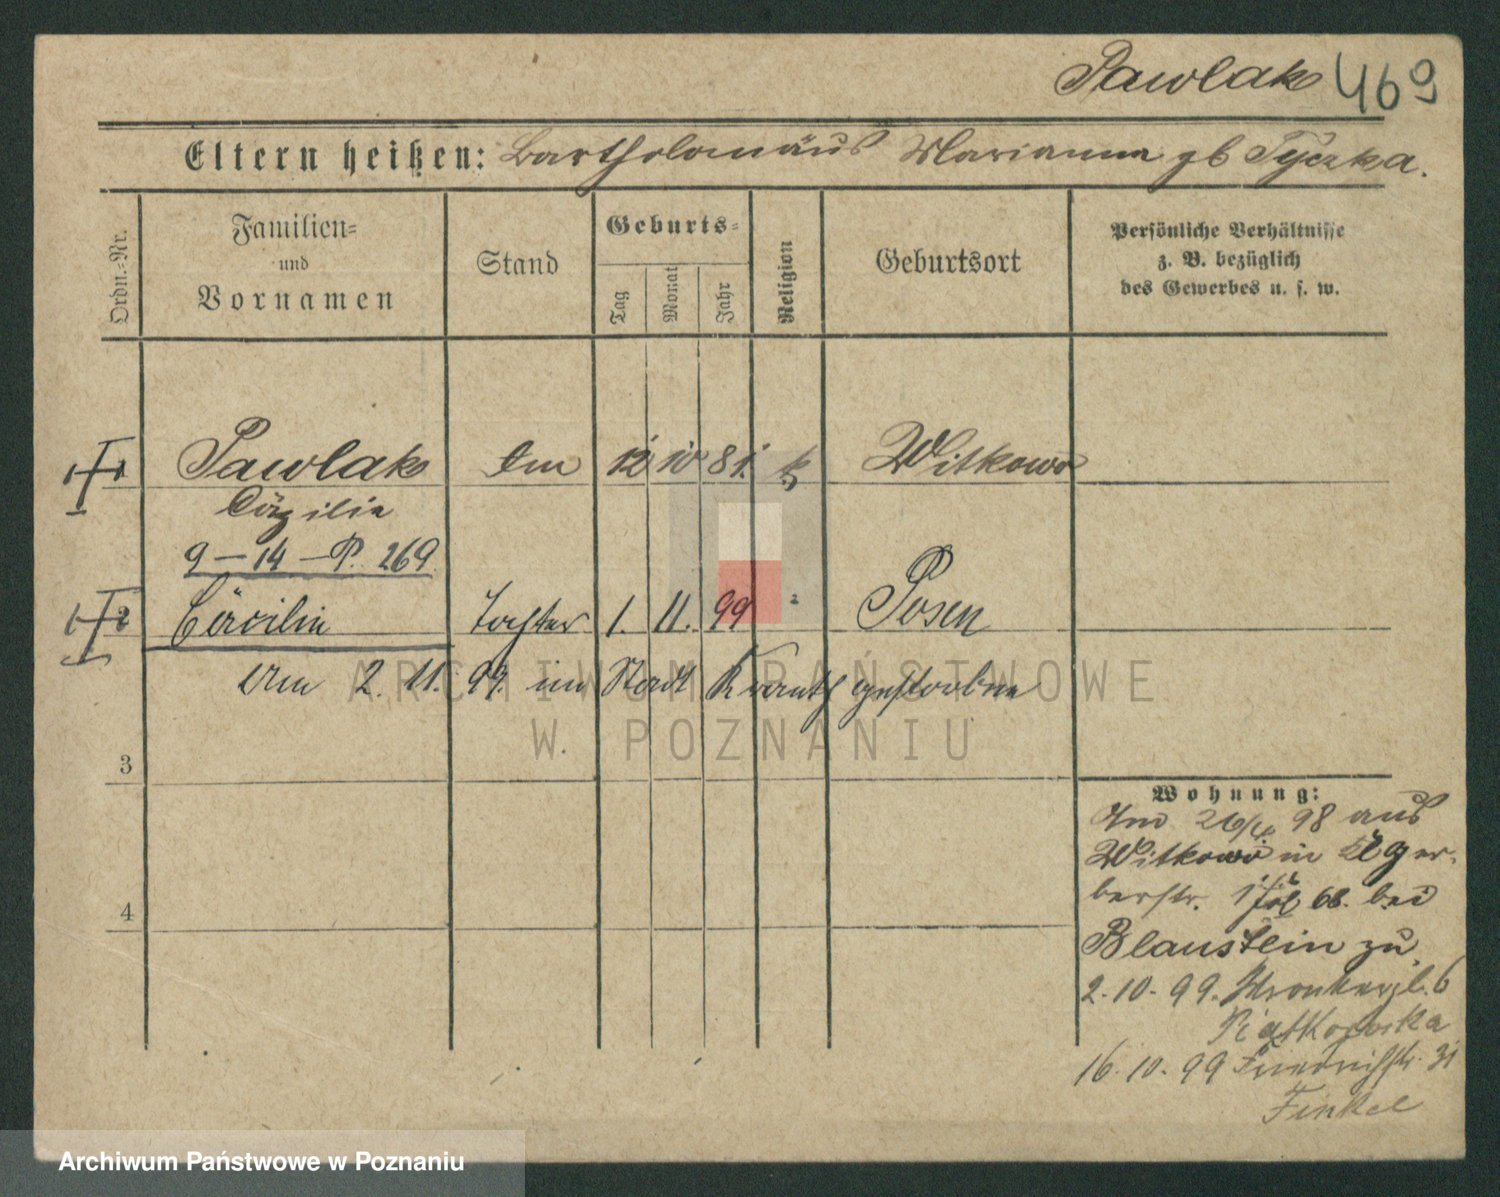 Pawlak 469
Eltern heißen: Bartholomäus Marianna gb Tyczka.
Ordn.-Nr.
Familien- und Vornamen
Stand
Geburts-
Tag
Monat
Jahr
Religion
Geburtsort
Persönliche Verhältnisse
z. B. bezüglich
des Gewerbes u. s. w.
1 Pawlak 12 10 81. k Witkowo
Cäzilie
9-14-P. 269
2 Cäcilie Tochter 1. 11. 99 Posen
Am 2. 11. 99. im Stadt Krankh gestorben
ARCHIWUM PAŃSTWOWE
W POZNANIU
3
4
Wohnung:
98 aus
Witkowo in
bei
Blaustein zu.
2.10.99. 6
Piątkowska
16.10.99 Friedrichstr. 31
Finkel
Archiwum Państwowe w Poznaniu